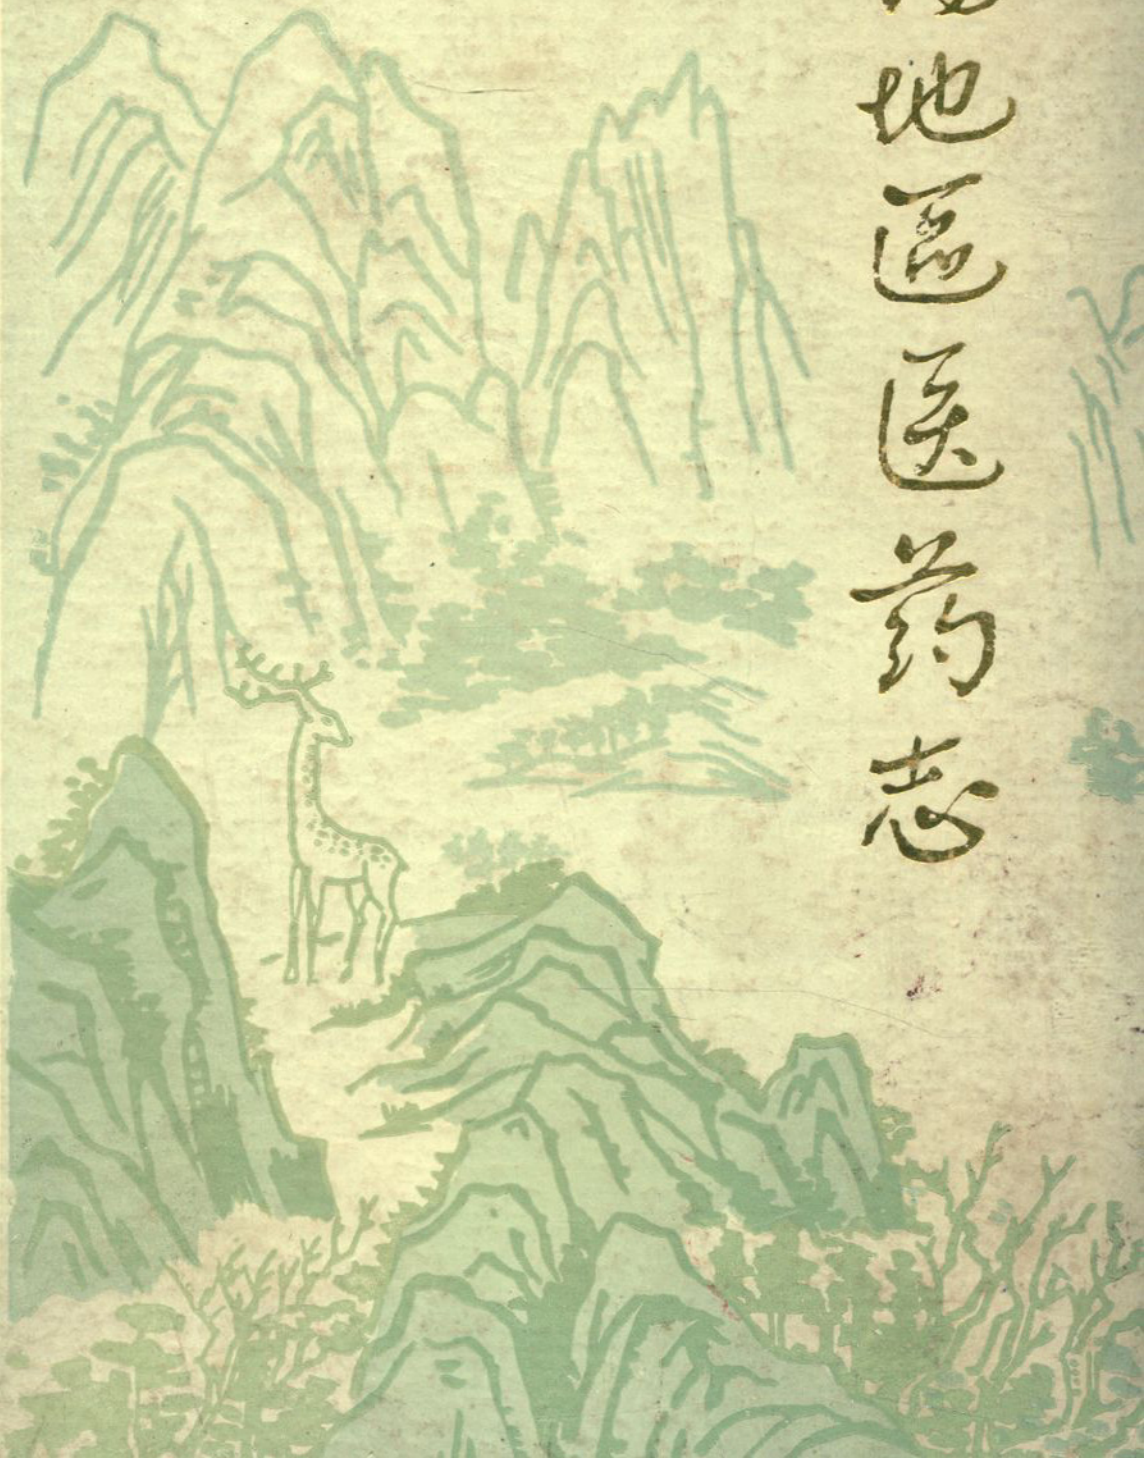 地區医药志